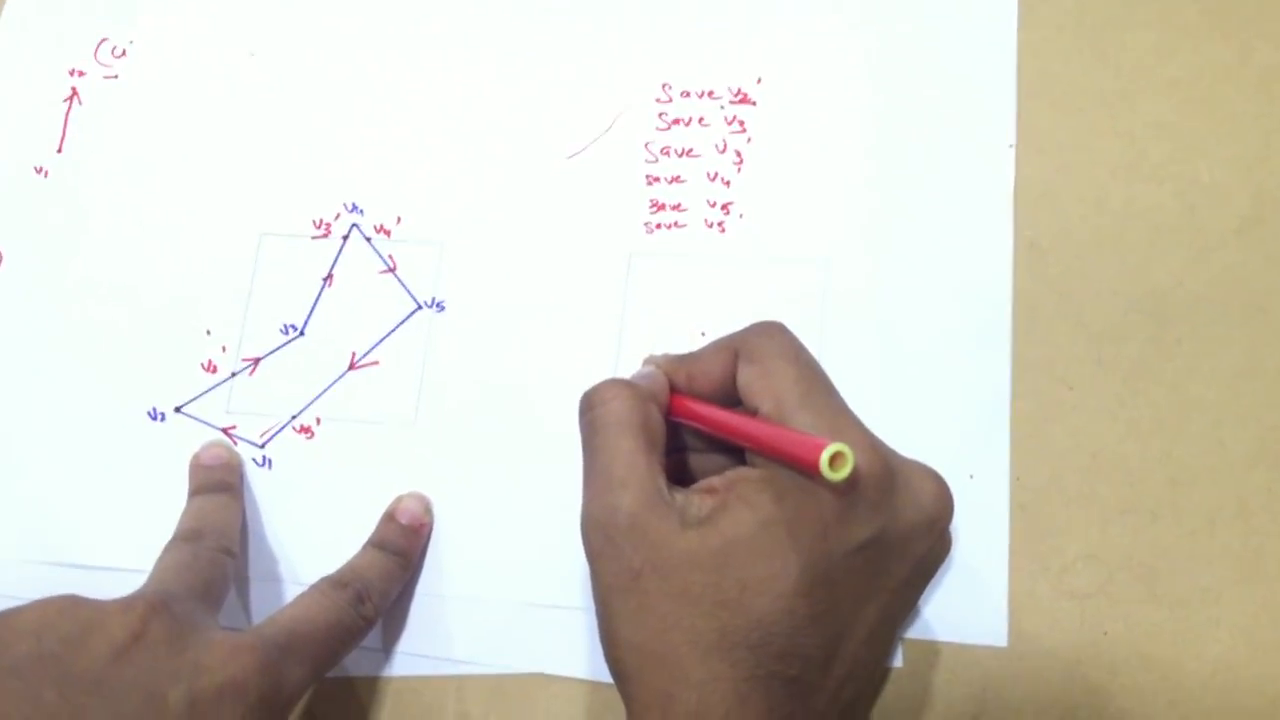 v2
v1
save v2'
save v3
save v3'
save v4'
save v5
save v5'
v4
v3' v4'
v5
v3
v2'
v2
v5'
v1